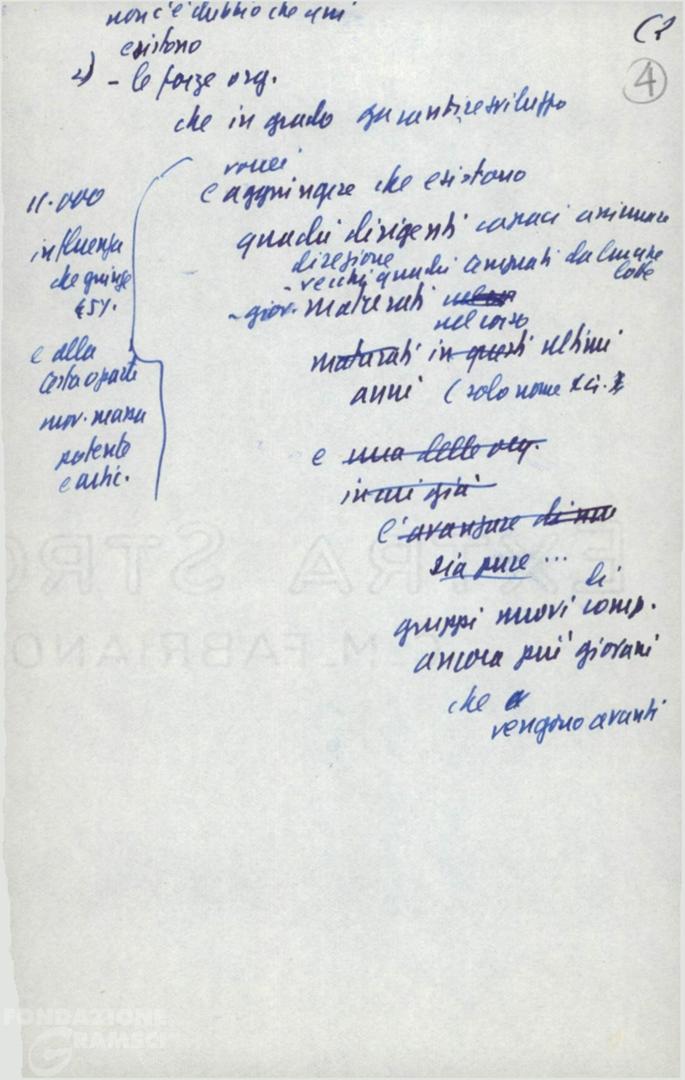 non c'è dubbio che qui
esistono
2) - le forze org.
che in grado garantire sviluppo
(2
4
vorrei
e aggiungere che esistono
quadri dirigenti capaci animare
direzione
- vecchi quadri temprati da lunghe lotte
- giov. maturati
nel corso
maturati in questi ultimi
anni (solo nome sci.
11.000
influenza
che giunge
45%.
e alla
testa o parte
mov. massa
potente
e artic.
e una delle org.
in cui già
è avanzare di nu
sia pure ...
di
gruppi nuovi comp.
ancora più giovani
che
vengono avanti
EXTRA STRO
M. FABRIANO
FONDAZIONE
GRAMSCI